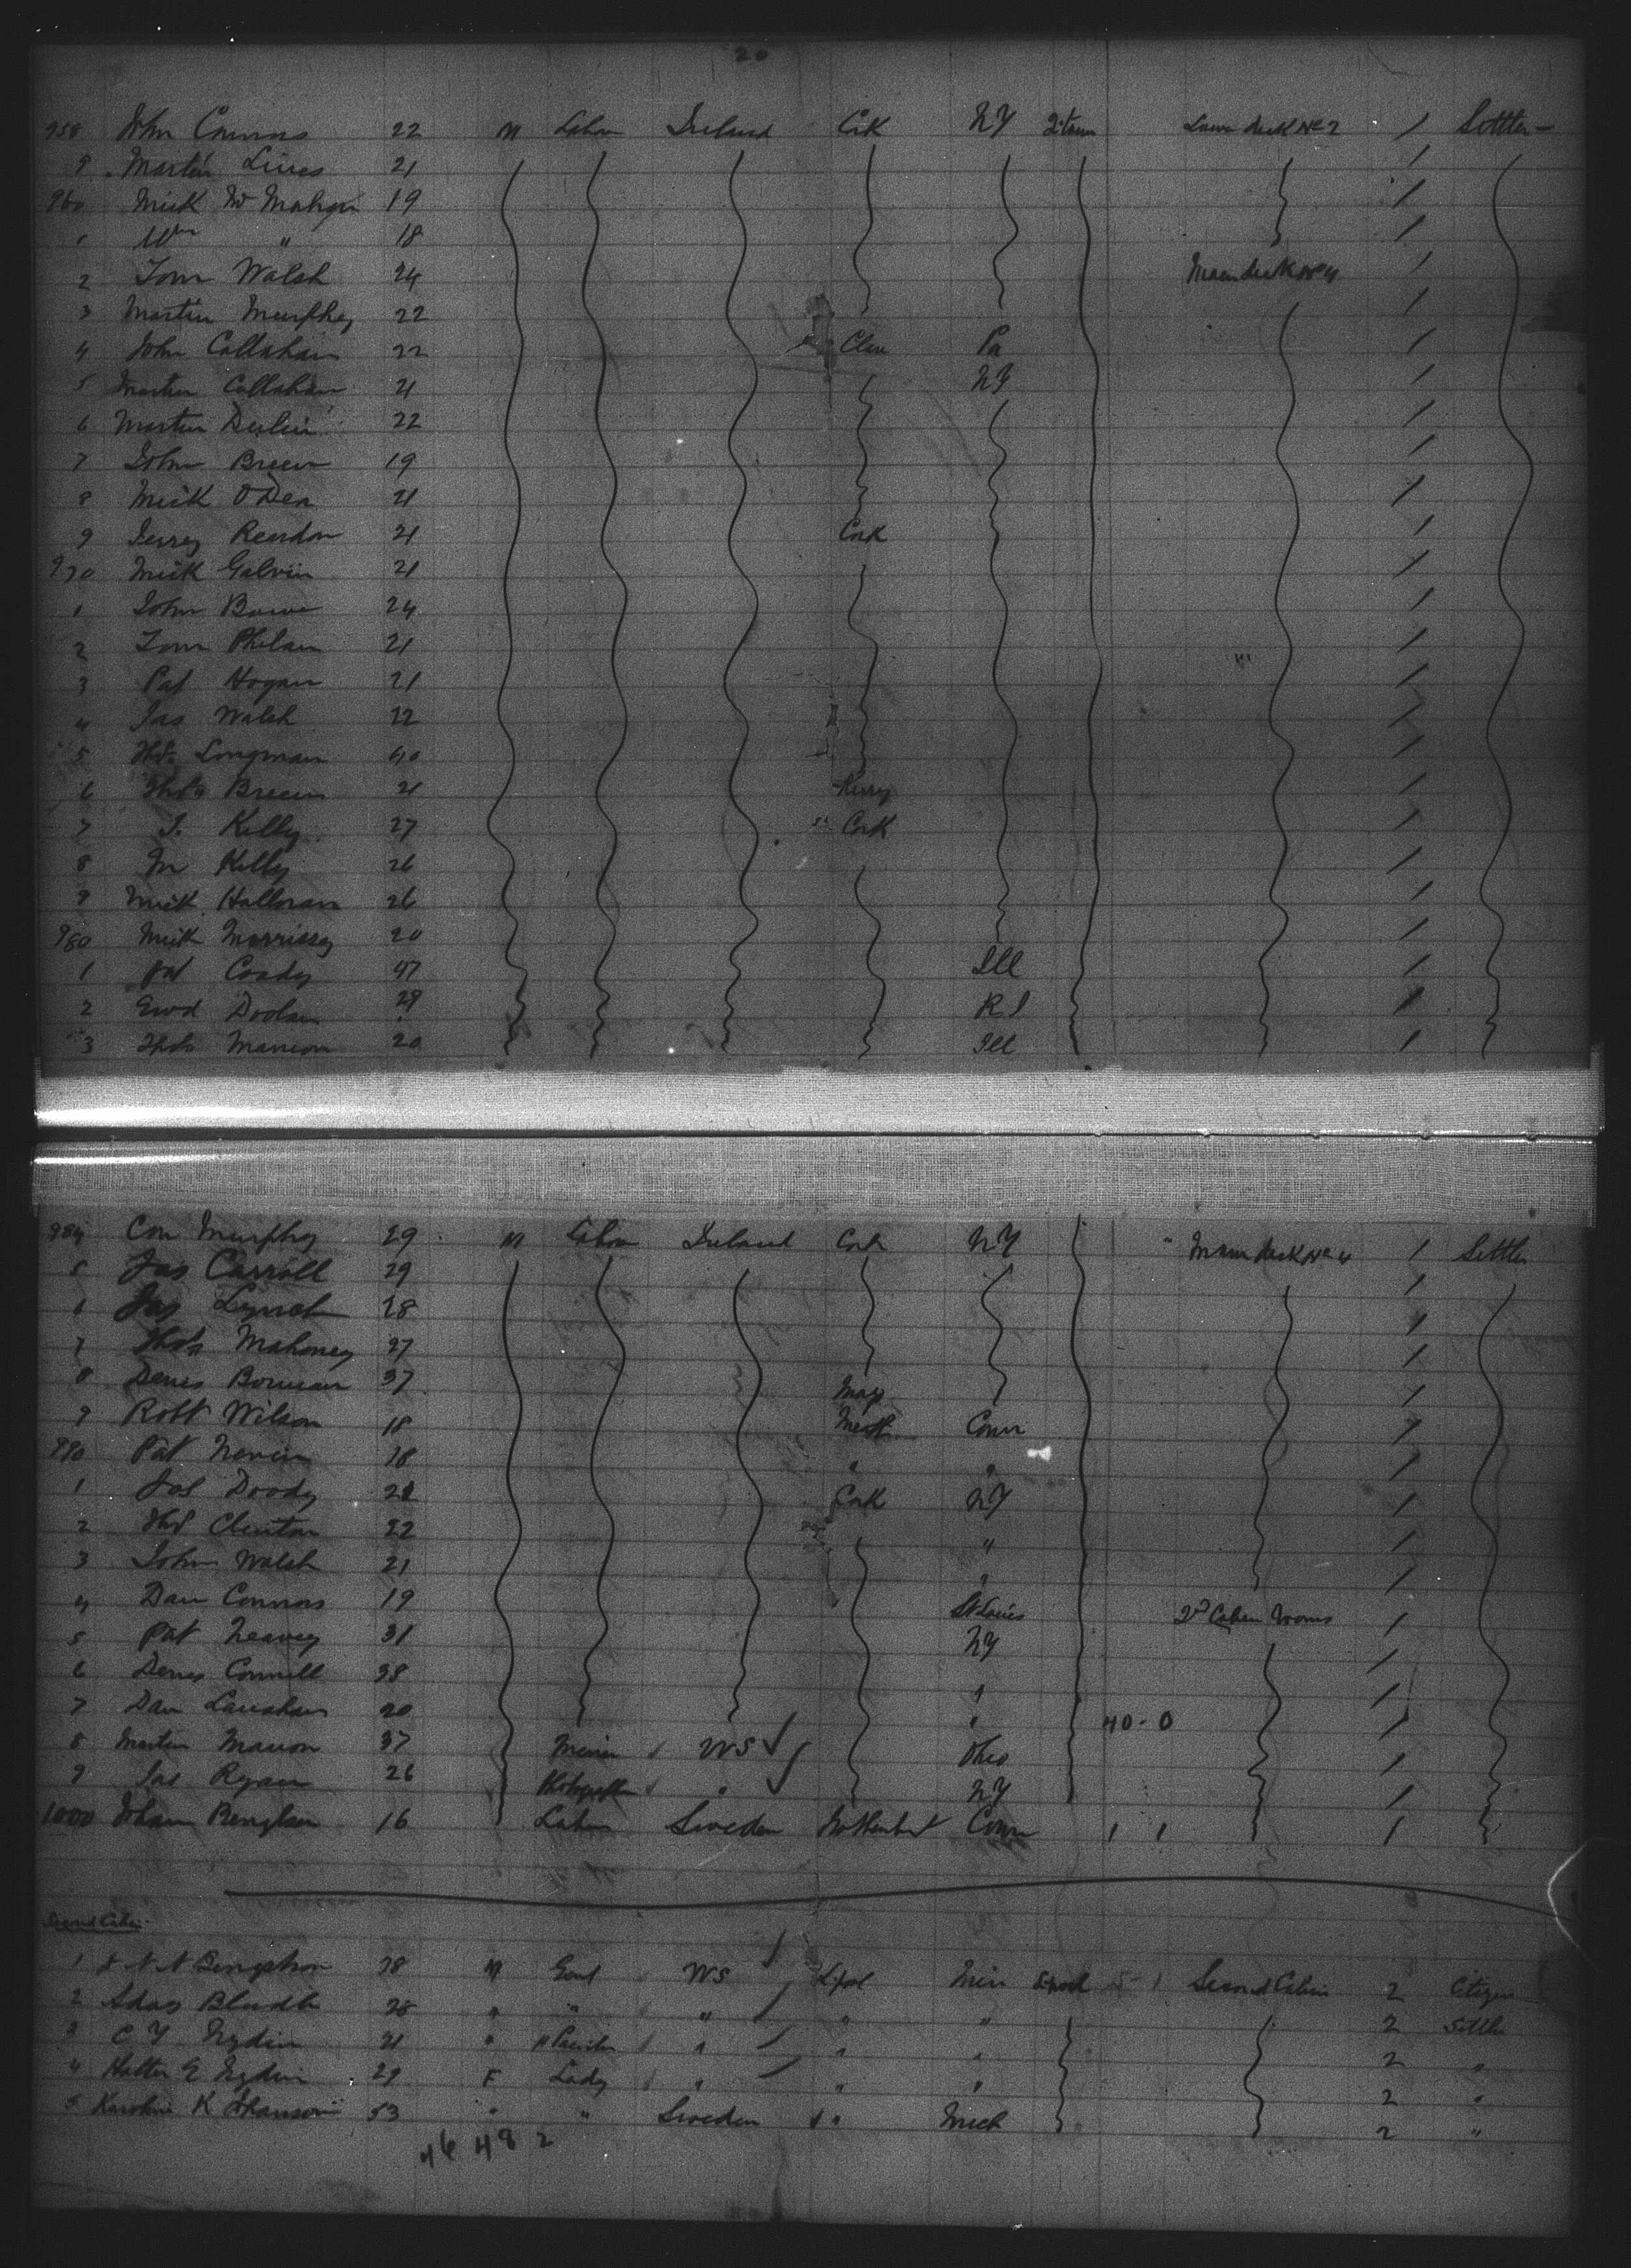 20
958 John Connors 22 M Labor Ireland Cork NY Lower deck No 2 / Settler
9 Martin Lines 21 /
960 Mick McMahon 19 /
1 Wm " 18 /
2 Tom Walsh 24 Main deck No 4 /
3 Martin Murphy 22 /
4 John Callahan 22 Clare Pa /
5 Martin Callahan 21 NY /
6 Martin 22 /
7 John Breen 19 /
8 Mick O'Dea 21 /
9 Jerrey Reardon 21 Cork /
970 Mick Galvin 21 /
1 John Bowe 24 /
2 Tom Phelan 21 /
3 Pat Hogan 21 /
4 Jas Walsh 22 /
5 Thos Longman /
6 Thos Breen 21 Kerry /
7 J. Kelly 27 Cork /
8 M Kelly 26 /
9 Mick Halloran 26 /
980 Mick Morrissey 20 /
1 Pat Coady 47 Ill /
2 Ewd Doolan 29 R I /
3 Thos Manion 20 Ill /
984 Con Murphy 29 M Labor Ireland Cork NY " Main deck No 4 / Settler
5 Jas Carroll 29 /
6 Jas Lynch 28 /
7 Thos Mahoney 27 /
8 Denis 37 Mayo /
9 Robt Wilson 18 Meath Conn /
990 Pat Nevin 18 " " /
1 Jas Doody 21 Cork NY /
2 Thos Clinton 22 " /
3 John Walsh 21 " /
4 Dan Connors 19 St Louis 2d Cabin Rooms /
5 Pat Neavey 31 NY /
6 Denis Connell 38 " /
7 Dan 20 " 40-0 /
8 Martin Manion 37 US Ohio /
9 Jas Ryan 26 " NY /
1000 Johan Bengtson 16 Labor Sweden Conn 1 1 /
Second Cabin
1 Bengston 28 M Gent US Lpool Min Second Cabin 2 Citizen
2 28 " " " " " 2 Settler
3 C Y Nydin 21 " " " " 2 "
4 E Nydin 29 F Lady " " " 2 "
5 K Johanson 53 " " Sweden " Mich 2 "
46 48 2